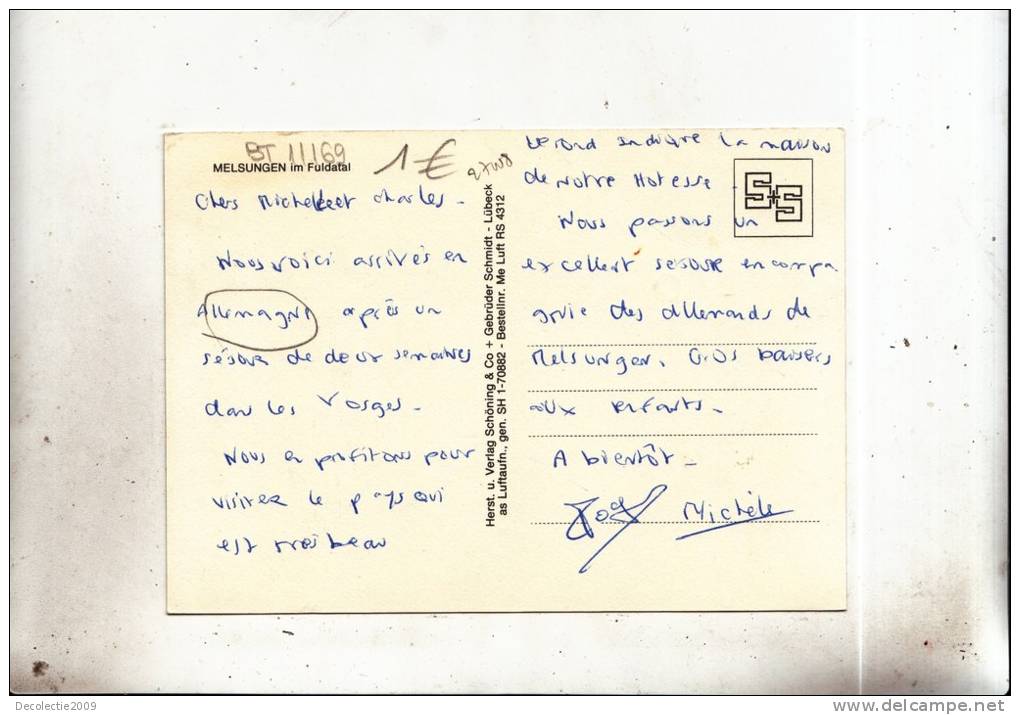 BT 11169
1 €
MELSUNGEN im Fuldatal
Chers Michele et Charles -
Nous voici arrivés en
Allemagne après un
séjour de deux semaines
dans les Vosges -
Nous en profitons pour
visiter le pays qui
est très beau
Herst. u. Verlag Schöning & Co + Gebrüder Schmidt - Lübeck
as Luftaufn., gen. SH 1-70882 - Bestellnr. Me Luft RS 4312
Le rond indique la maison
de notre Hotesse -
S+S
Nous passons un
excellent séjour en compa
gnie des allemands de
Melsungen. Gros baisers
aux enfants -
A bientôt -
Michèle
Decolectie2009
www.delcampe.net